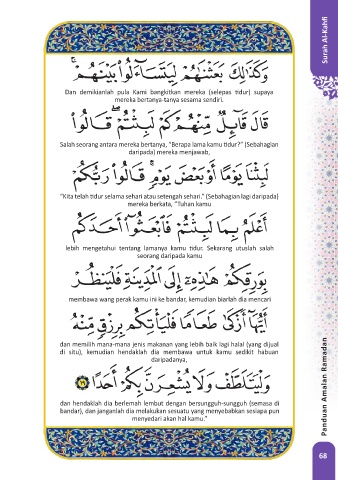 Surah Al-Kahfi
وَكَذَٰلِكَ بَعَثْنَٰهُمْ لِيَتَسَآءَلُوا۟ بَيْنَهُمْ ۚ
Dan demikianlah pula Kami bangkitkan mereka (selepas tidur) supaya
mereka bertanya-tanya sesama sendiri.
قَالَ قَآئِلٌ مِّنْهُمْ كَمْ لَبِثْتُمْ ۖ قَالُوا۟
Salah seorang antara mereka bertanya, "Berapa lama kamu tidur?" (Sebahagian
daripada) mereka menjawab,
لَبِثْنَا يَوْمًا أَوْ بَعْضَ يَوْمٍ ۚ قَالُوا۟ رَبُّكُمْ
"Kita telah tidur selama sehari atau setengah sehari." (Sebahagian lagi daripada)
mereka berkata, "Tuhan kamu
أَعْلَمُ بِمَا لَبِثْتُمْ فَٱبْعَثُوٓا۟ أَحَدَكُم
lebih mengetahui tentang lamanya kamu tidur. Sekarang utuslah salah
seorang daripada kamu
بِوَرِقِكُمْ هَٰذِهِۦٓ إِلَى ٱلْمَدِينَةِ فَلْيَنظُرْ
membawa wang perak kamu ini ke bandar, kemudian biarlah dia mencari
أَيُّهَآ أَزْكَىٰ طَعَامًا فَلْيَأْتِكُم بِرِزْقٍ مِّنْهُ
dan memilih mana-mana jenis makanan yang lebih baik lagi halal (yang dijual
di situ), kemudian hendaklah dia membawa untuk kamu sedikit habuan
daripadanya,
وَلْيَتَلَطَّفْ وَلَا يُشْعِرَنَّ بِكُمْ أَحَدًا ١٩
dan hendaklah dia berlemah lembut dengan bersungguh-sungguh (semasa di
bandar), dan janganlah dia melakukan sesuatu yang menyebabkan sesiapa pun
menyedari akan hal kamu."
Panduan Amalan Ramadan
68